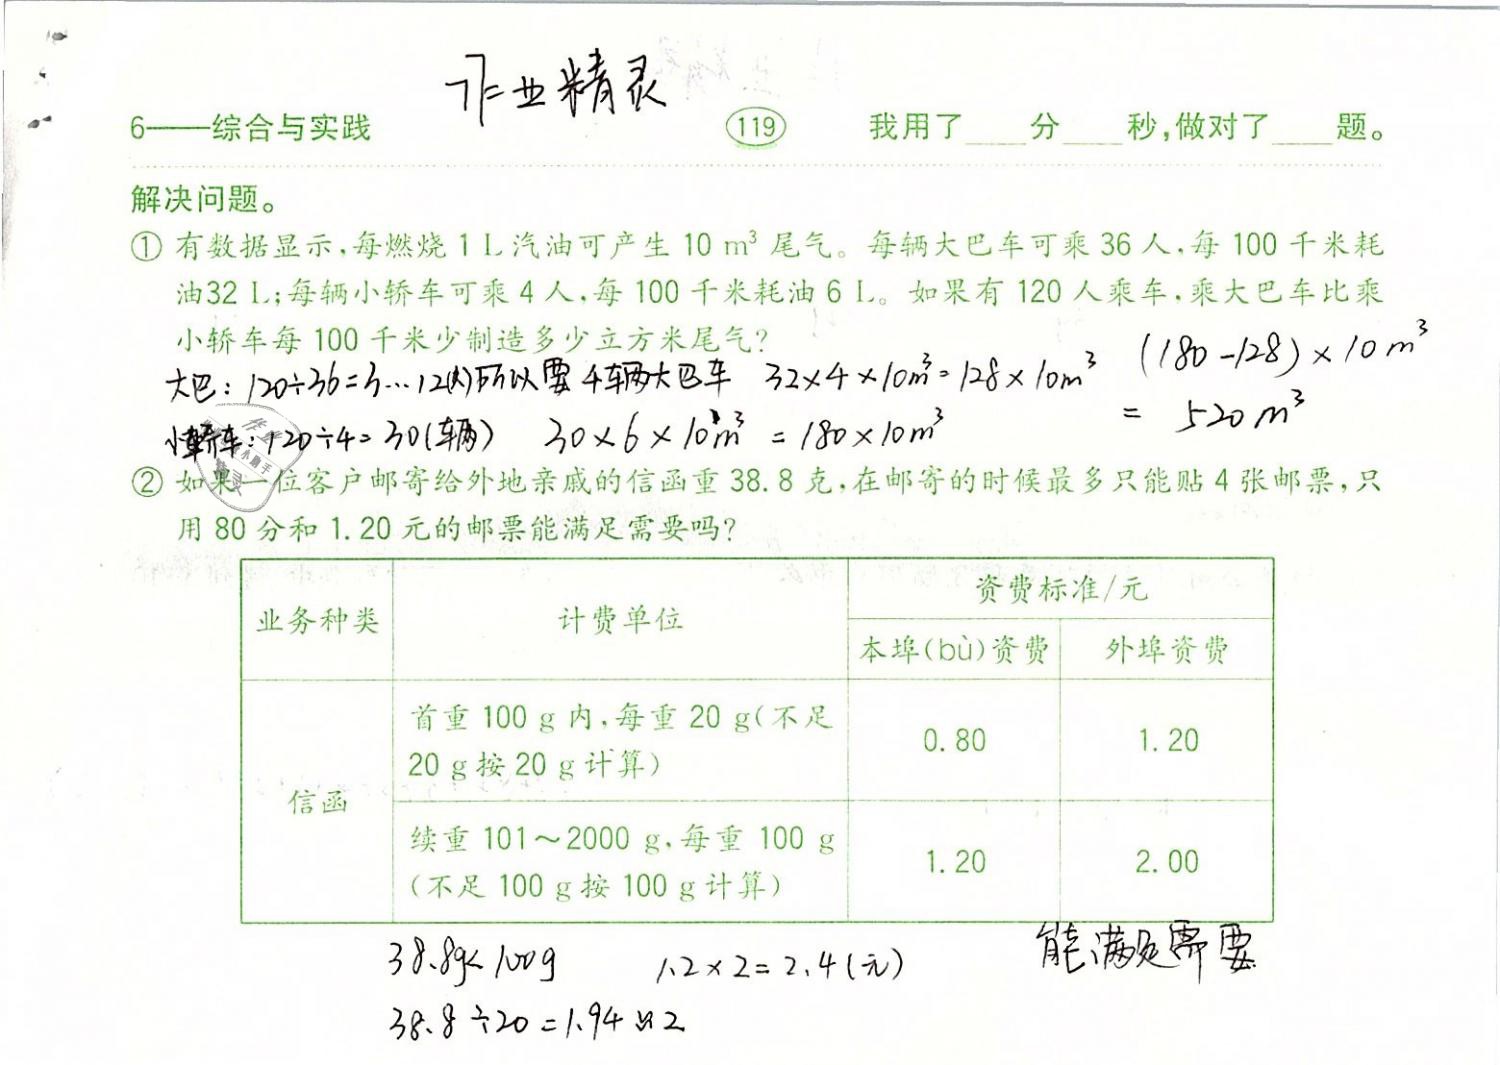 作业精灵
6——综合与实践 119 我用了____分____秒,做对了____题。
解决问题。
① 有数据显示,每燃烧 1 L 汽油可产生 10 m³ 尾气。每辆大巴车可乘 36 人,每 100 千米耗
油32 L;每辆小轿车可乘 4 人,每 100 千米耗油 6 L。如果有 120 人乘车,乘大巴车比乘
小轿车每 100 千米少制造多少立方米尾气?
大巴:120÷36=3…12(人)所以要4辆大巴车 32×4×10m³=128×10m³ (180-128)×10m³
小轿车:120÷4=30(辆) 30×6×10m³=180×10m³ =520m³
② 如果一位客户邮寄给外地亲戚的信函重 38.8 克,在邮寄的时候最多只能贴 4 张邮票,只
用 80 分和 1.20 元的邮票能满足需要吗?
业务种类 计费单位 资费标准/元
本埠(bù)资费 外埠资费
信函
首重 100 g 内,每重 20 g(不足
20 g 按 20 g 计算) 0.80 1.20
续重 101~2000 g,每重 100 g
(不足 100 g 按 100 g 计算) 1.20 2.00
38.8g<100g 1.2×2=2.4(元) 能满足需要
38.8÷20=1.94≈2